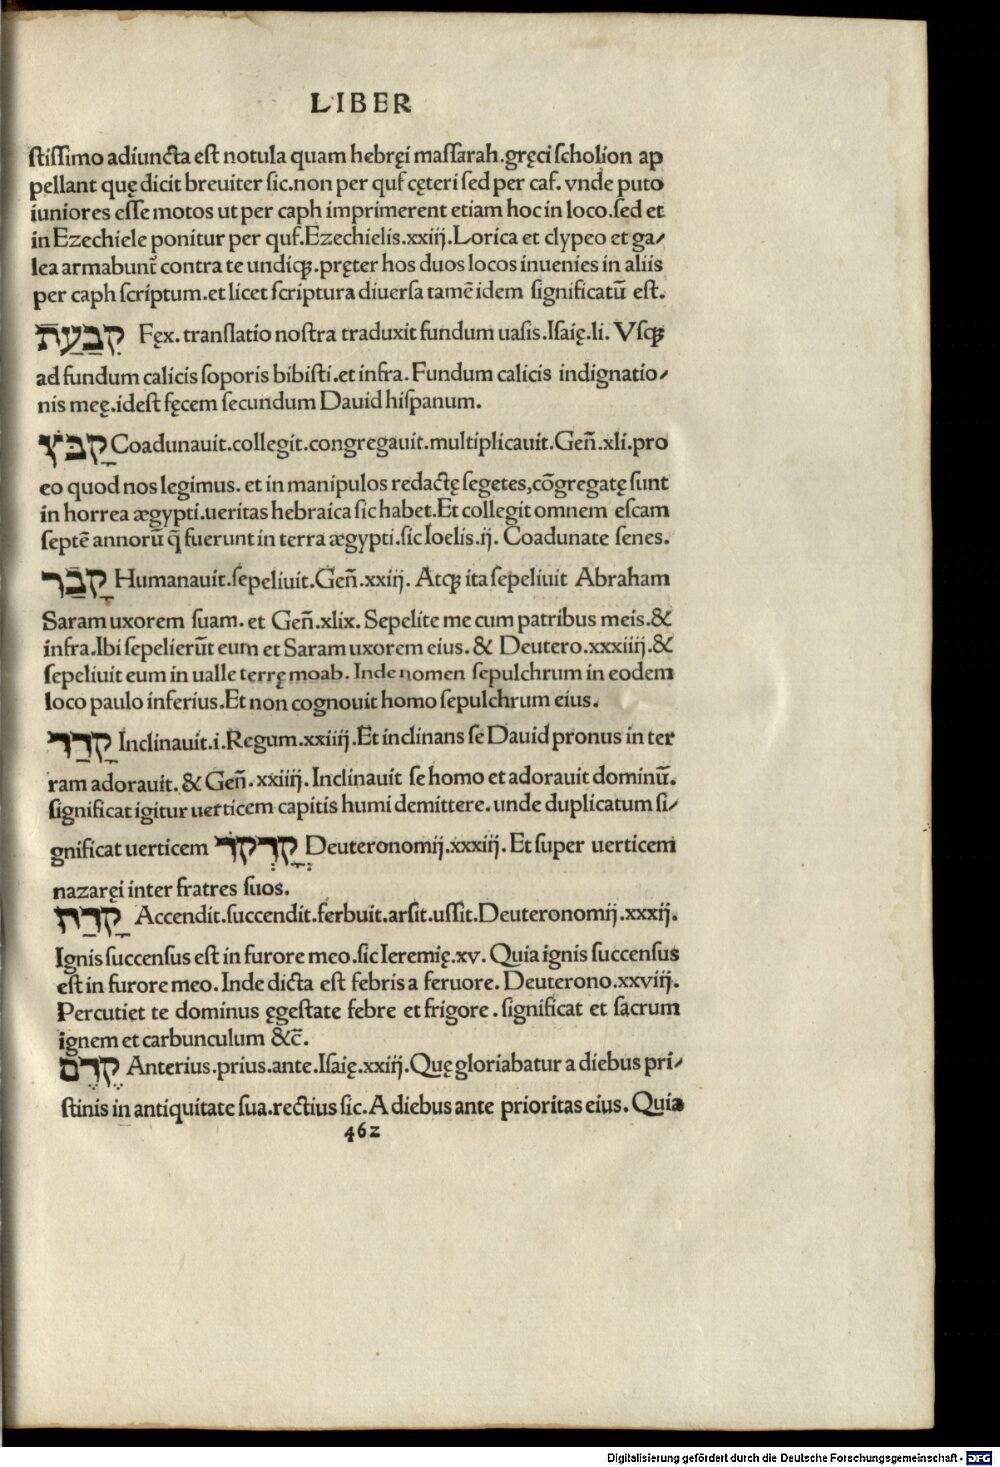 LIBER
stissimo adiuncta est notula quam hebręi massarah.gręci scholion ap
pellant quę dicit breuiter sic.non per quf cęteri sed per caf. vnde puto
iuniores esse motos ut per caph imprimerent etiam hoc in loco.sed et
in Ezechiele ponitur per quf.Ezechielis.xxiij.Lorica et clypeo et ga/
lea armabunt̄ contra te undiqꝫ.pręter hos duos locos inuenies in aliis
per caph scriptum.et licet scriptura diuersa tamē idem significatū est.
קִבַּעַת Fęx. translatio nostra traduxit fundum uasis.Isaię.li. Vsqꝫ
ad fundum calicis soporis bibisti.et infra.Fundum calicis indignatio/
nis meę.idest fęcem secundum Dauid hispanum.
קָבַּץ Coadunauit.collegit.congregauit.multiplicauit.Geñ.xli.pro
eo quod nos legimus. et in manipulos redactę segetes,cōgregatę sunt
in horrea ægypti.ueritas hebraica sic habet.Et collegit omnem escam
septē annorū q̄ fuerunt in terra ægypti.sic Ioelis.ij. Coadunate senes.
קָבַּר Humanauit.sepeliuit.Geñ.xxiij. Atqꝫ ita sepeliuit Abraham
Saram uxorem suam. et Geñ.xlix. Sepelite me cum patribus meis.&
infra.Ibi sepelierūt eum et Saram uxorem eius. & Deutero.xxxiiij.&
sepeliuit eum in ualle terrę moab. Inde nomen sepulchrum in eodem
loco paulo inferius.Et non cognouit homo sepulchrum eius.
קָדַד Inclinauit.i.Regum.xxiiij.Et inclinans se Dauid pronus in ter
ram adorauit. & Geñ.xxiiij.Inclinauit se homo et adorauit dominū.
significat igitur uerticem capitis humi demittere. unde duplicatum si/
gnificat uerticem קָדְקֹד Deuteronomij.xxxiij. Et super uerticem
nazaręi inter fratres suos.
קָדַח Accendit.succendit.ferbuit.arsit.ussit.Deuteronomij.xxxij.
Ignis succensus est in furore meo.sic Ieremię.xv. Quia ignis succensus
est in furore meo. Inde dicta est febris a feruore. Deuterono.xxviij.
Percutiet te dominus ęgestate febre et frigore . significat et sacrum
ignem et carbunculum &c̄.
קֶדֶם Anterius.prius.ante.Isaię.xxiij.Quę gloriabatur a diebus pri/
stinis in antiquitate sua.rectius sic.A diebus ante prioritas eius. Quia
462
Digitalisierung gefördert durch die Deutsche Forschungsgemeinschaft - DFG